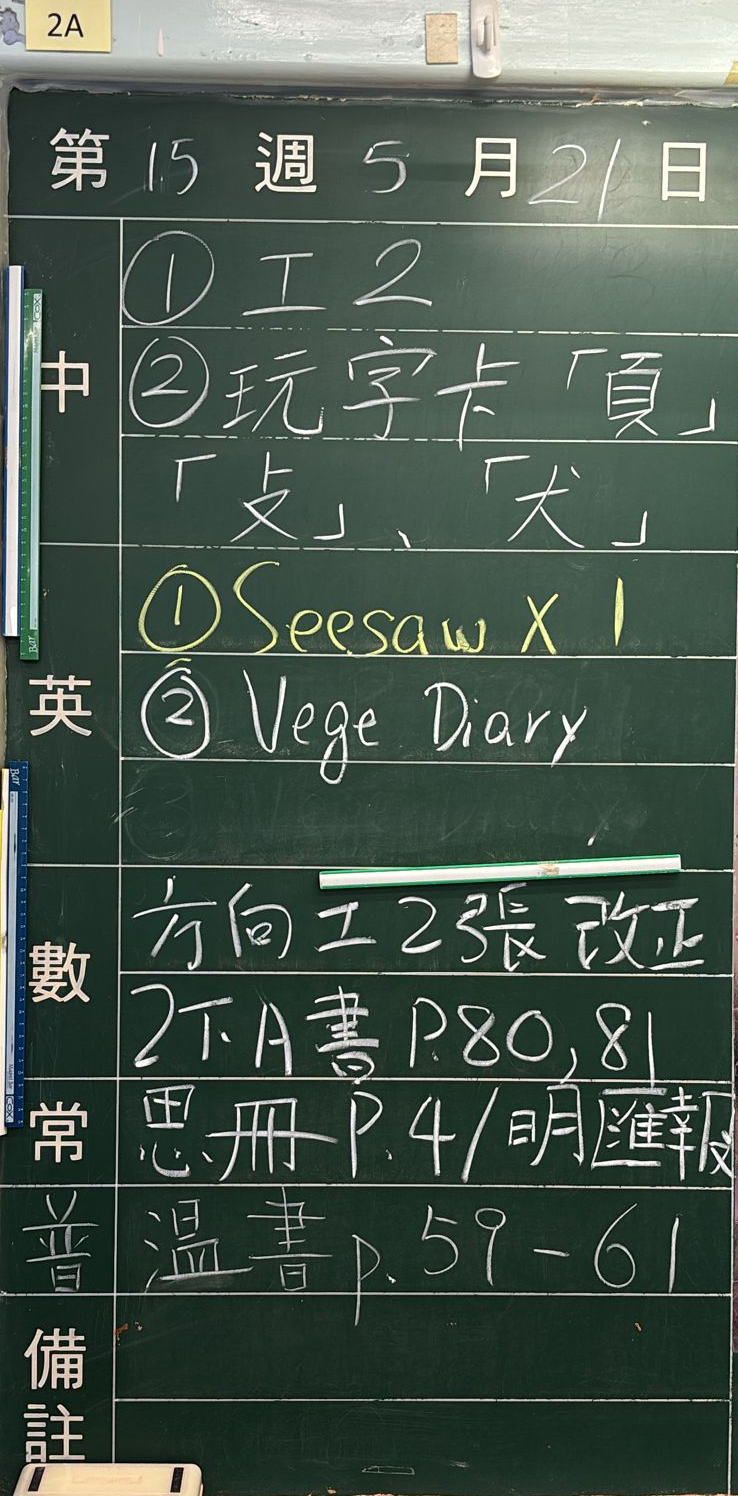 2A
第 15 週 5 月 21 日
中
① 工 2
② 玩字卡「頁」
「攴」、「犬」
英
① Seesaw X 1
② Vege Diary
數
方向工2張 改正
2下A書 P.80,81
常
思冊 P.41 明匯報
普
溫書 p.59-61
備註